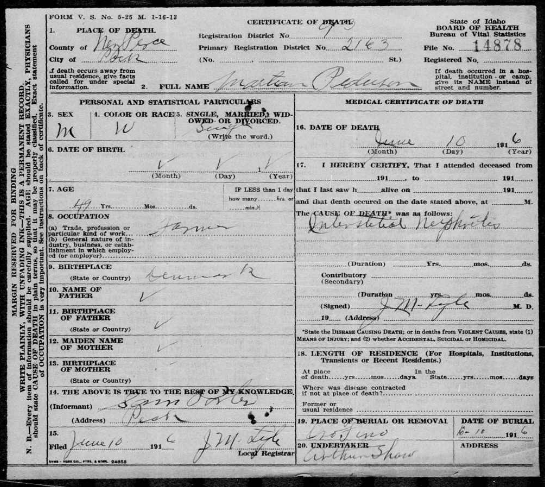 FORM V. S. No. 5-25 M. 1-16-12
CERTIFICATE OF DEATH
State of Idaho
BOARD OF HEALTH
Bureau of Vital Statistics
1. PLACE OF DEATH.
Registration District No.
County of Nez Perce
Primary Registration District No. 2163
File No. 14878
City of Peck
(No. St.)
Registered No.
If death occurs away from usual residence, give facts called for under special information.
2. FULL NAME
If death occurred in a hospital, institution or camp, give its NAME instead of street and number.
PERSONAL AND STATISTICAL PARTICULARS
MEDICAL CERTIFICATE OF DEATH
3. SEX
M
4. COLOR OR RACE
W
5. SINGLE, MARRIED, WIDOWED OR DIVORCED.
(Write the word.)
16. DATE OF DEATH
June 10 1916
(Month) (Day) (Year)
6. DATE OF BIRTH
(Month) (Day) (Year)
17. I HEREBY CERTIFY, That I attended deceased from
191 , to 191
7. AGE
49 Yrs. Mos. ds.
IF LESS than 1 day how many hrs or min.?
that I last saw h alive on 191
and that death occurred on the date stated above, at M.
The CAUSE OF DEATH* was as follows:
Interstitial Nephritis
8. OCCUPATION
(a) Trade, profession or particular kind of work
Farmer
(b) General nature of industry, business, or establishment in which employed (or employer)
(Duration) Yrs. mos. ds.
Contributory
(Secondary)
9. BIRTHPLACE
(State or Country)
Denmark
10. NAME OF FATHER
(Duration) Yrs. mos. ds.
(Signed) J M Lyle M. D.
19 (Address)
11. BIRTHPLACE OF FATHER
(State or Country)
*State the DISEASE CAUSING DEATH; or in deaths from VIOLENT CAUSES, state (1) MEANS OF INJURY; and (2) whether ACCIDENTAL, SUICIDAL or HOMICIDAL.
12. MAIDEN NAME OF MOTHER
13. BIRTHPLACE OF MOTHER
(State or Country)
18. LENGTH OF RESIDENCE (For Hospitals, Institutions, Transients or Recent Residents.)
At place of death yrs. mos. days. In the State yrs. mos. days
Where was disease contracted if not at place of death?
Former or usual residence
14. THE ABOVE IS TRUE TO THE BEST OF MY KNOWLEDGE
(Informant) Sam
(Address) Peck
19. PLACE OF BURIAL OR REMOVAL
DATE OF BURIAL
Orofino
6-10 1916
15.
Filed June 10 1916 J M Lyle
Local Registrar
20. UNDERTAKER
ADDRESS
Arthur Shaw
MARGIN RESERVED FOR BINDING
WRITE PLAINLY, WITH UNFADING INK—THIS IS A PERMANENT RECORD.
N. B.—Every item of information should be carefully supplied. AGE should be stated EXACTLY, PHYSICIANS
should state CAUSE OF DEATH in plain terms, so that it may be properly classified. Exact statement
of OCCUPATION is very important. See instructions on back of certificate.